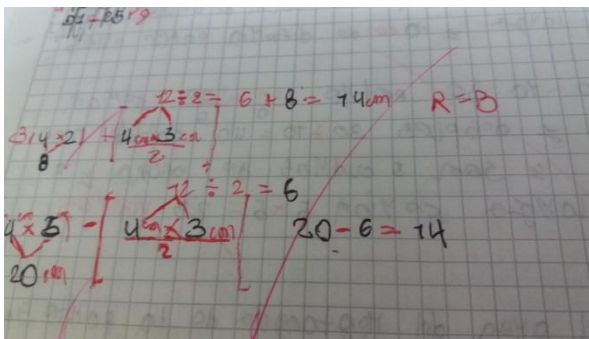 12 ÷ 2 = 6 + 8 = 14cm R = B
(4 × 2) + [4cm × 3cm
8 2
12 ÷ 2 = 6
4 × 5) - [4cm × 3cm] 20 - 6 = 14
20cm 2